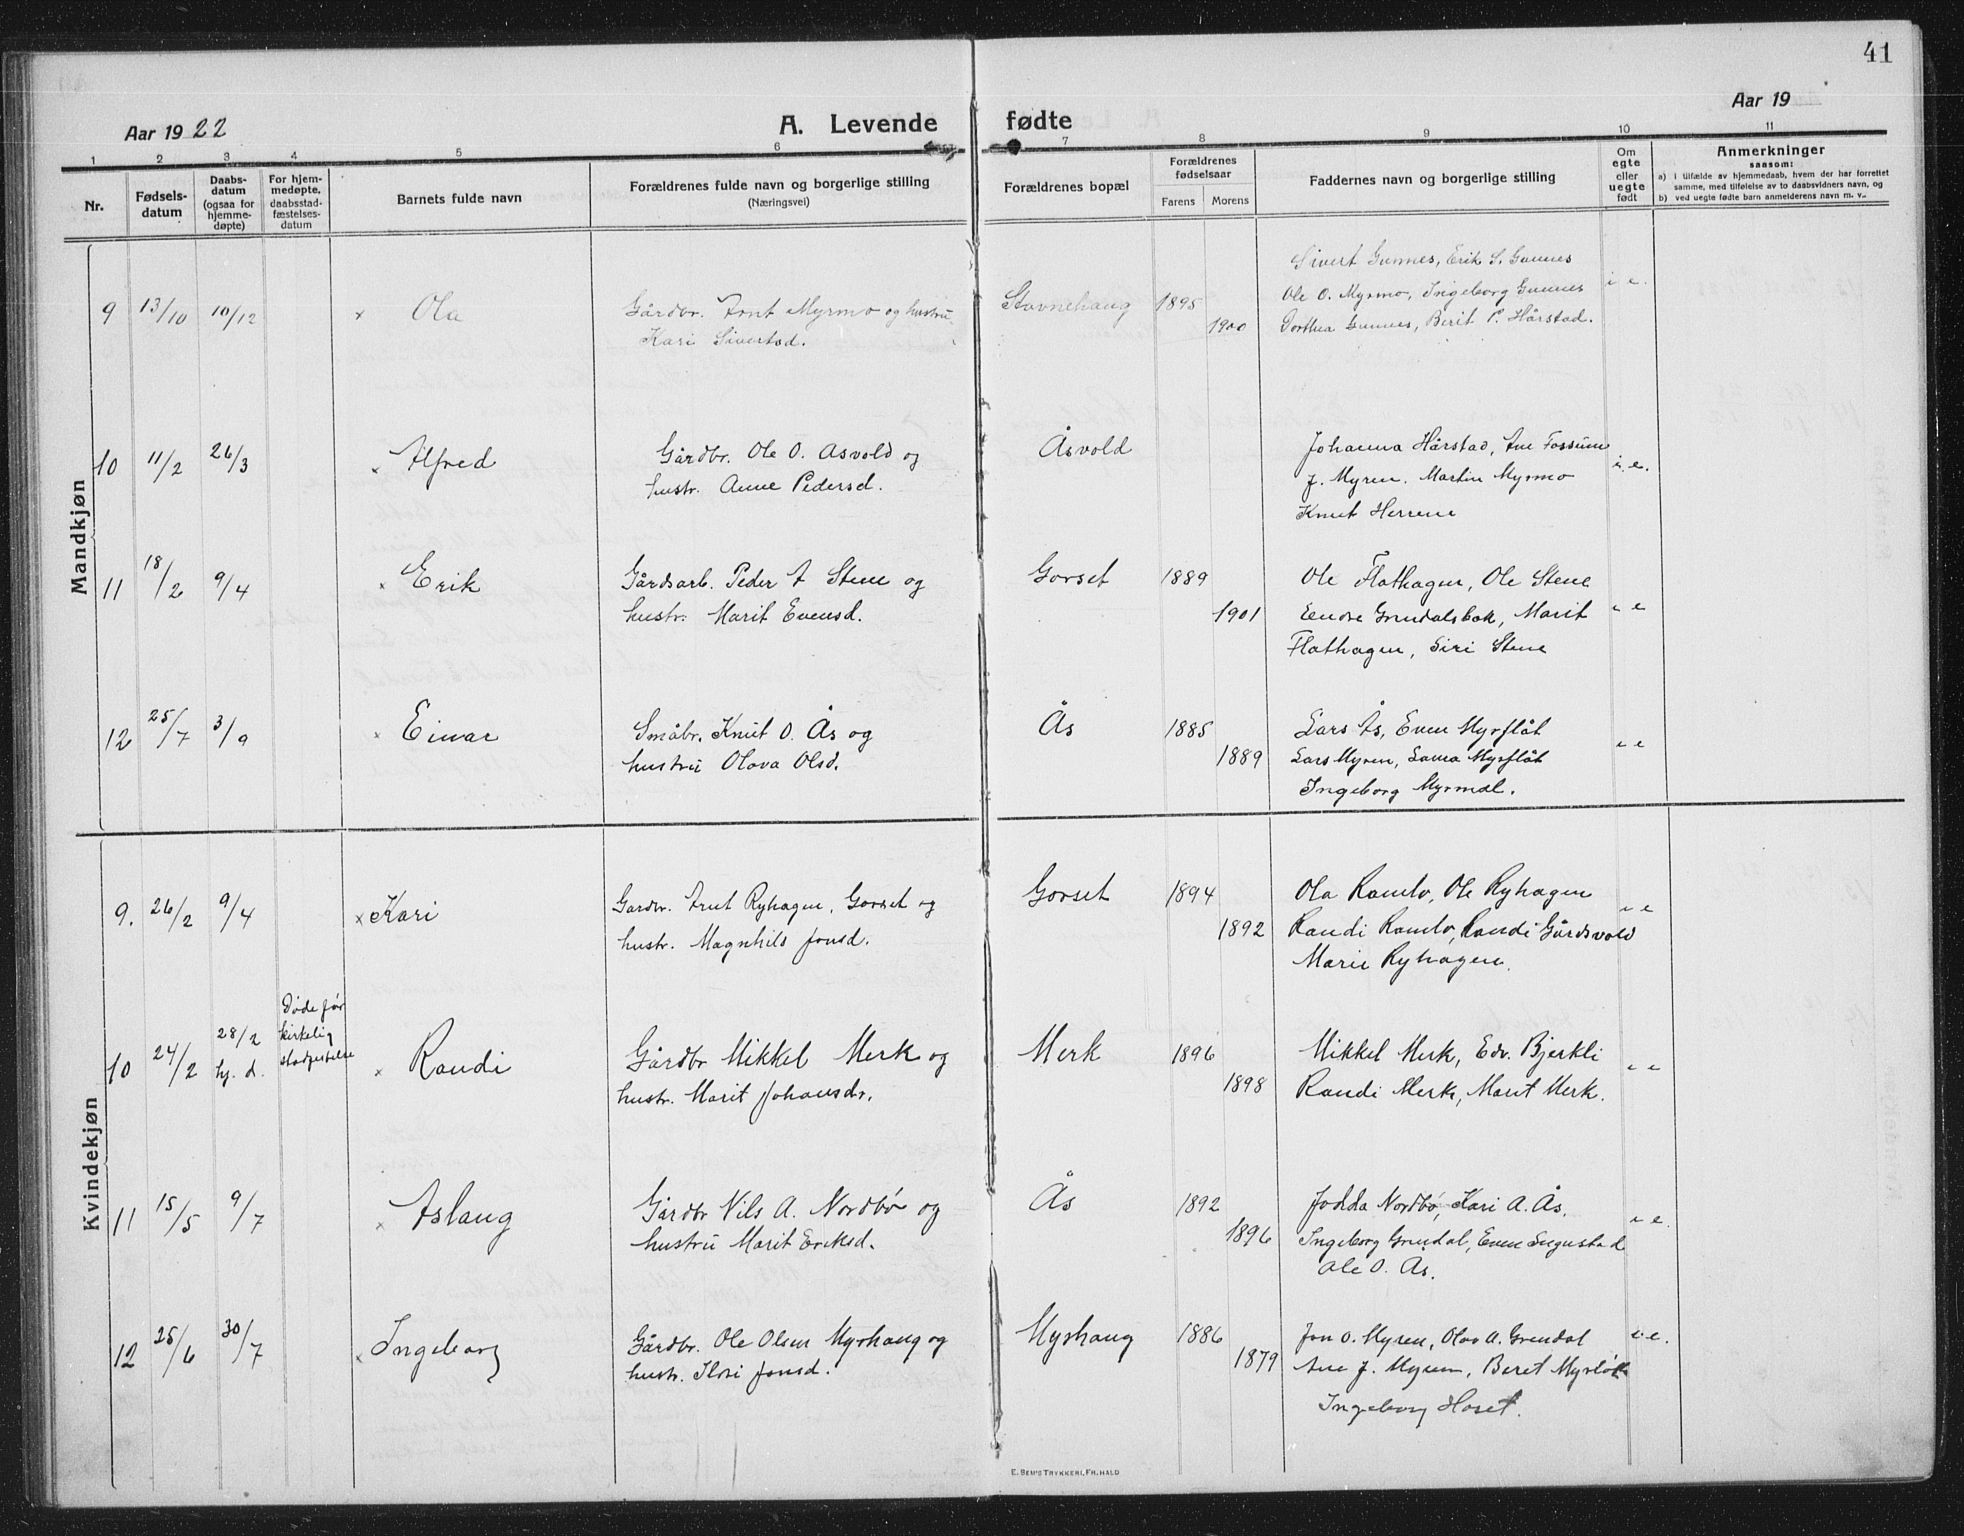 41
Aar 1922
A. Levende fødte
Aar 19
1 2 3 4 5 6 7 8 9 10 11
Nr.
Fødsels-
datum
Daabs-
datum
(ogsaa for
hjemme-
døpte)
For hjem-
medøpte,
daabsstad-
fæstelses-
datum
Barnets fulde navn
Forældrenes fulde navn og borgerlige stilling
(Næringsvei)
Forældrenes bopæl
Forældrenes
fødselsaar
Farens Morens
Faddernes navn og borgerlige stilling
Om
egte
eller
uegte
født
Anmerkninger
saasom:
a) i tilfælde av hjemmedaab, hvem der har forrettet
samme, med tilføielse av to daabsvidners navn, og
b) ved uegte fødte barn anmelderens navn m. v..
Mandkjøn
9 13/10 10/12 × Ola
Gårdbr. Arnt Myrmo og hustru
Kari Sivertsd.
Stavnehaug 1895
1900
Sivert Gunnes, Erik S. Gunnes
Ole O. Myrmo, Ingeborg Gunnes
Dorthea Gunnes, Berit P. Hårstad.
i e.
10 11/2 26/3 × Alfred
Gårdbr. Ole O. Åsvold og
hustr. Anne Pedersd.
Åsvold
Johanna Hårstad, Ane Fossum
J. Myren. Martin Myrmo
Knut Herrene
i. e.
11 18/2 9/4 × Erik
Gårdsarb. Peder A Stene og
hustr. Marit Evensd.
Gorset 1889
1901
Ole Flathagen, Ole Stene
Endre Grendalsbak, Marit
Flathagen, Siri Stene
i e
12 25/7 3/9 × Einar
Småbr. Knut O. Ås og
hustru Olova Olsd.
Ås 1885
1889
Lars Ås, Even Myrflåt
Lars Myren, Myrflåt
Ingeborg Myrmæl.
i e
Kvindekjøn
9. 26/2 9/4 × Kari
Gardbr. Arnt Ryhagen, Gorset og
hustr. Magnhild Jonsd.
Gorset 1894
1892
Ola Ramlo, Ole Ryhagen
Randi Ramlo, Randi Gårdsvold
Marie Ryhagen.
i e
10 24/2 28/2
hj. d.
Døde før
kirkelig
stadfestelse
× Randi
Gårdbr Mikkel Merk og
hustr. Marit Johansdr.
Merk 1896
1898
Mikkel Merk, Edv. Bjerkli
Randi Merk, Marit Merk.
i e
11 15/5 9/7 × Aslaug
Gårdbr Nils A. Nordbø og
hustru Marit Eriksd.
Ås 1892
1896
Jodda Nordbø, Kari A. Ås,
Ingeborg Grendal, Even Engustad
Ole O. Ås.
i e.
12 25/6 30/7 × Ingeborg
Gårdbr. Ole Olsen Myrhaug og
hustr. Jonsd.
Myrhaug 1886
1879
Jon O. Myren, Olav A. Grendal
Ane J. Myren, Beret Myrsløt
Ingeborg Horet.
i e.
E. Sem's Trykkeri, Fr.hald